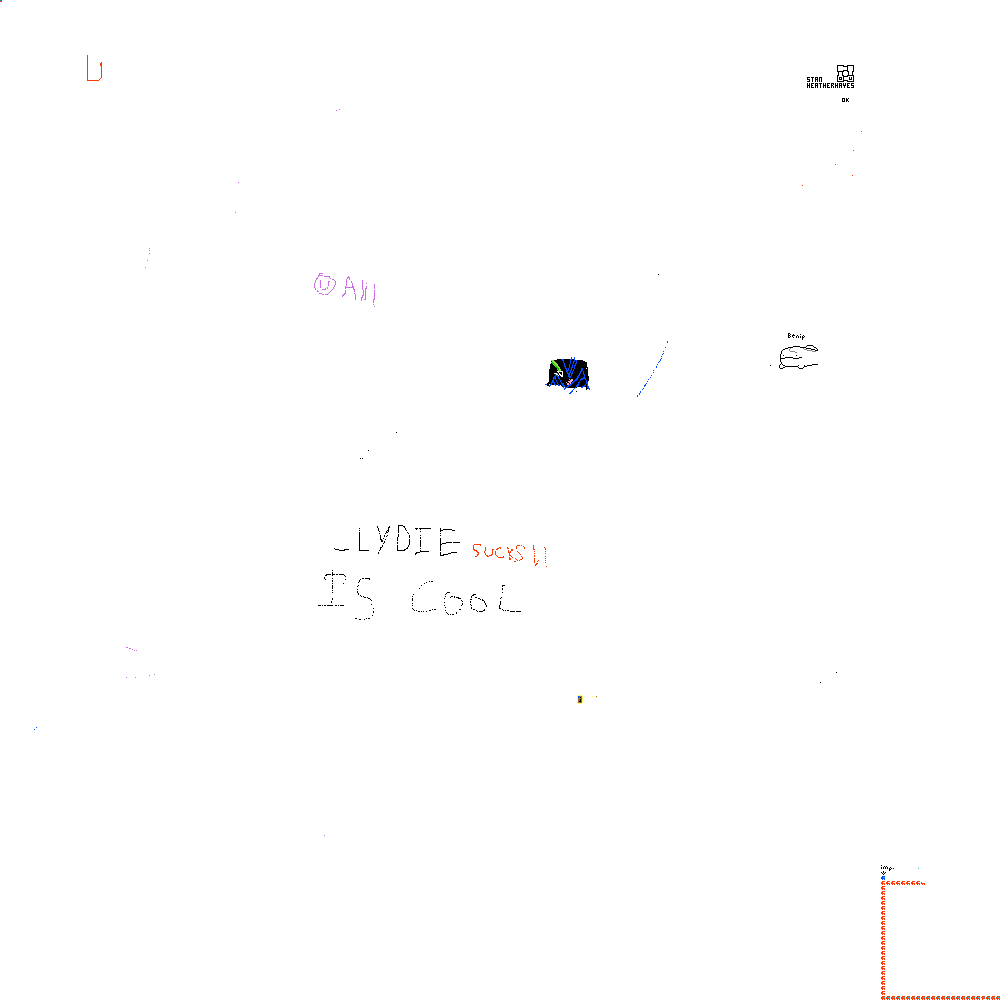 STAN
HEATHERHAYES
OK
Benip
_LYDIE sucks!!
IS COOL
imp.